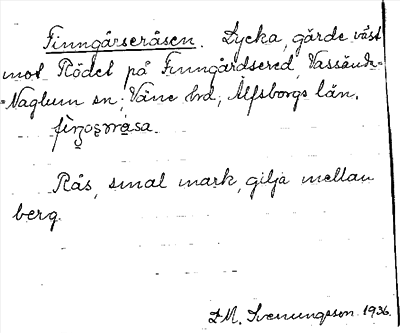 Finngårseråsen. Lycka, gärde väst
mot Rödet på Finngårdsered, Vassända-
-Naglum sn; Väne hrd; Älfsborgs län.
Rås, smal mark, gilja mellan
berg.
D.M. Svenungsson 1936.